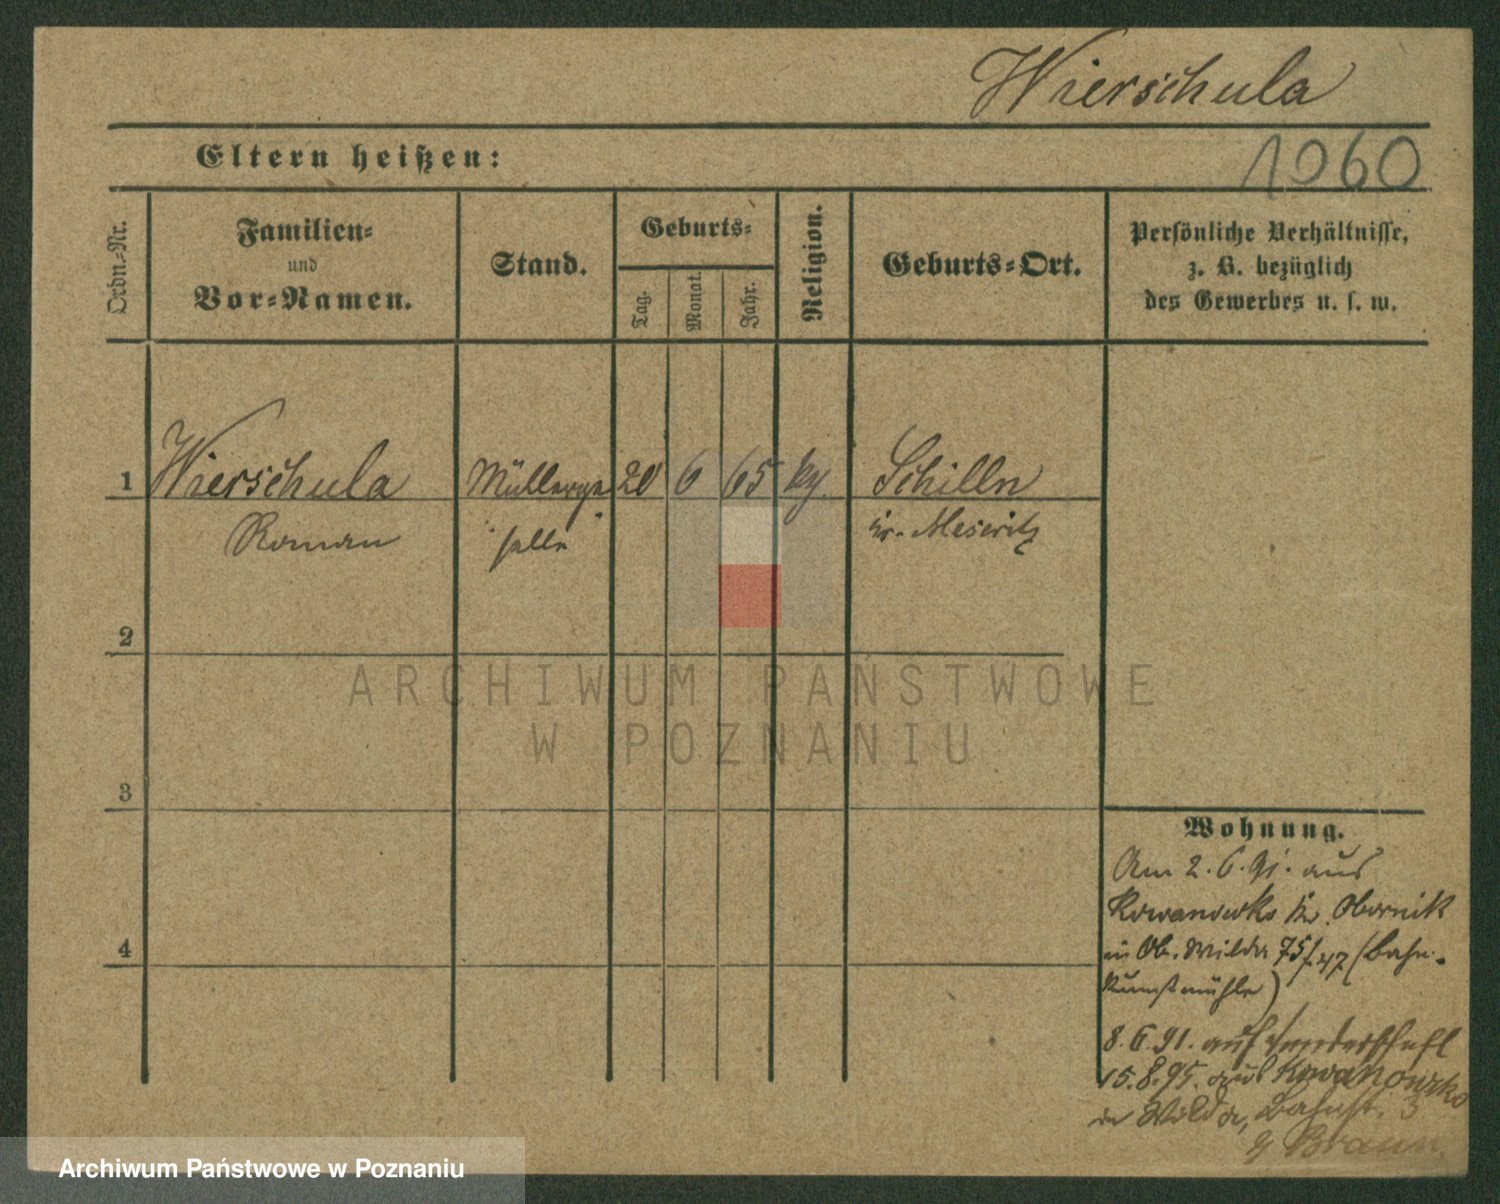 Wierschula
1060
Eltern heißen:
Ordn.-Nr.
Familien-
und
Vor-Namen.
Stand.
Geburts-
Tag.
Monat.
Jahr.
Religion.
Geburts-Ort.
Persönliche Verhältnisse,
z. B. bezüglich
des Gewerbes u. s. w.
1 Wierschula Müllerge 20 6 65 Schilln
Roman selle Kr. Meseritz
2
ARCHIWUM PAŃSTWOWE
W POZNANIU
3
Wohnung.
Am 2.6.91. aus
Kowanowko Kr. Obornik
in Ob. Wilda 75/ (Bahn-
Kunstmühle)
4
8.6.91. auf Wanderschaft
15.8.95. aus Kowanowko
in Wilda, Bahnst. 3
Braun
Archiwum Państwowe w Poznaniu